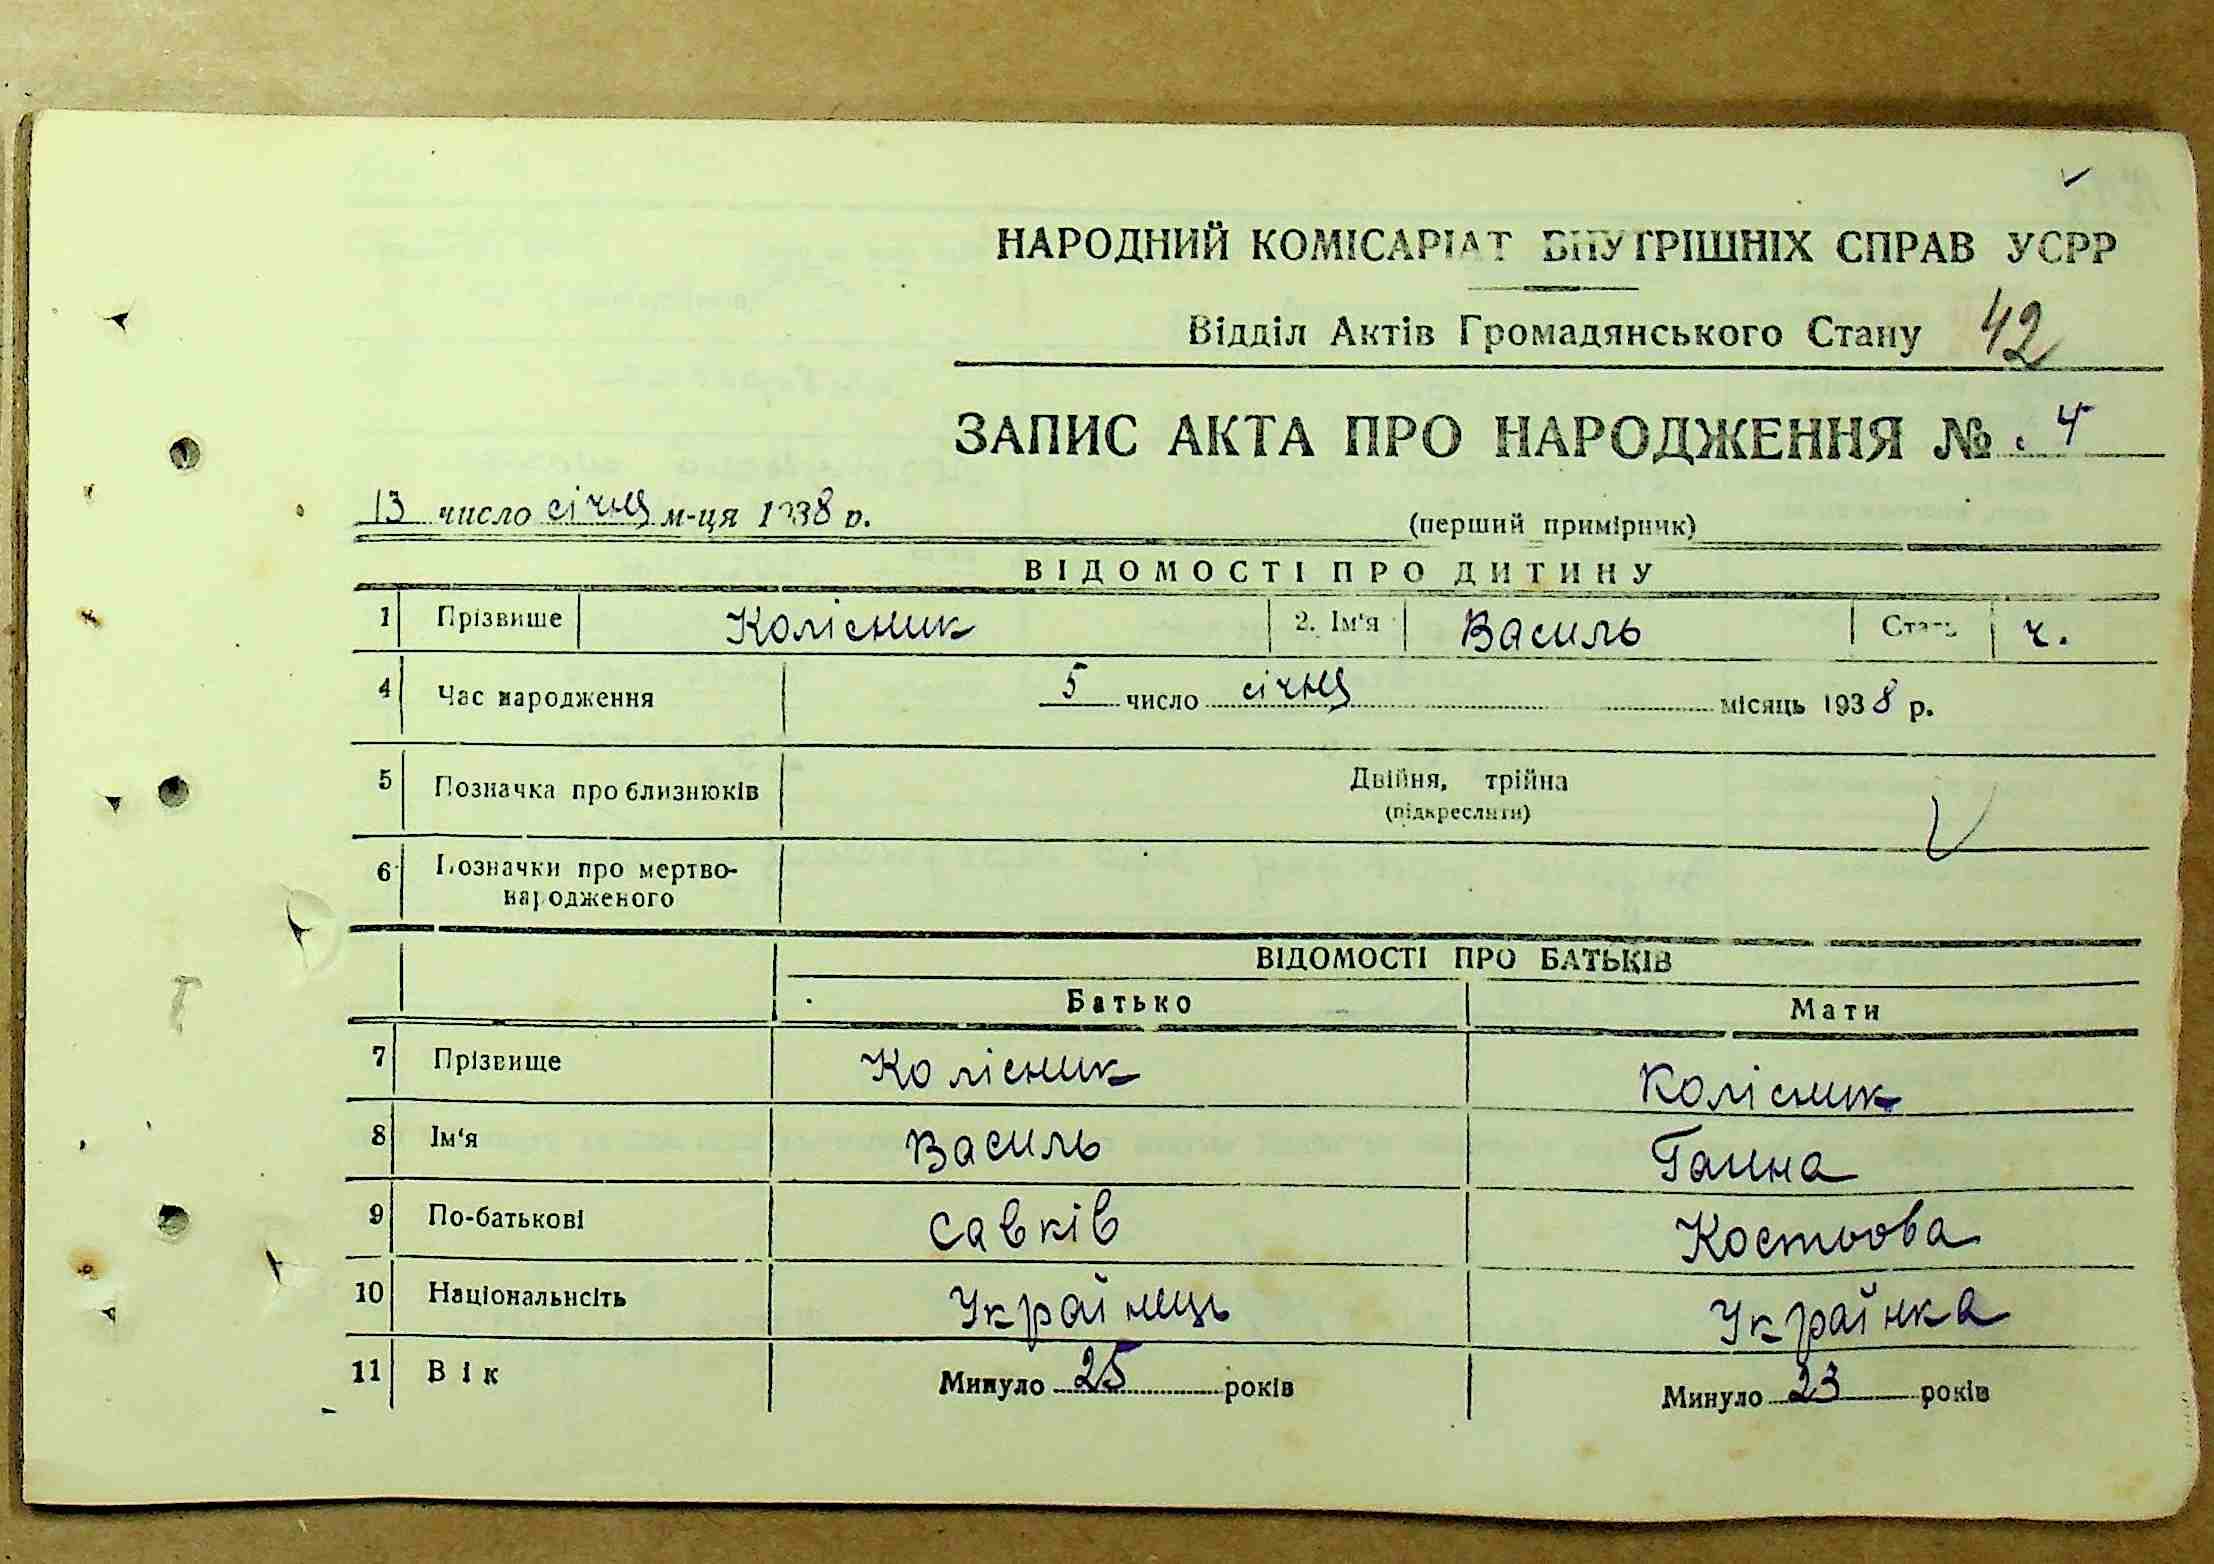 НАРОДНИЙ КОМІСАРІАТ ВНУТРІШНІХ СПРАВ УСРР
Відділ Актів Громадянського Стану 42
ЗАПИС АКТА ПРО НАРОДЖЕННЯ № 4
13 число січня м-ця 1938 р.
(перший примірник)
ВІДОМОСТІ ПРО ДИТИНУ
1 Прізвище Колісник 2. Ім'я Василь Стать ч.
4 Час народження 5 число січня місяць 1938 р.
5 Позначка про близнюків Двійня, трійна
(підкреслити)
6 Позначки про мертво-
народженого
ВІДОМОСТІ ПРО БАТЬКІВ
Батько Мати
7 Прізвище Колісник Колісник
8 Ім'я Василь Ганна
9 По-батькові Савків Костьова
10 Національність Українець Українка
11 Вік Минуло 25 років Минуло 23 років